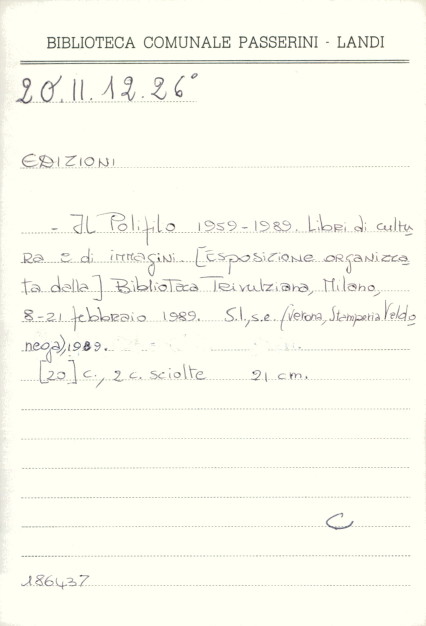 BIBLIOTECA COMUNALE PASSERINI - LANDI
20.II.12.26°
EDIZIONI
- Il Polifilo 1959-1989. Libri di cultu
ra e di immagini. [Esposizione organizza
ta dalla] Biblioteca Trivulziana, Milano,
8-21 febbraio 1989. S.l., s.e. (Verona, Stamperia Valdo
nega), 1989.
[20] c., 2 c. sciolte 21 cm.
C
186437